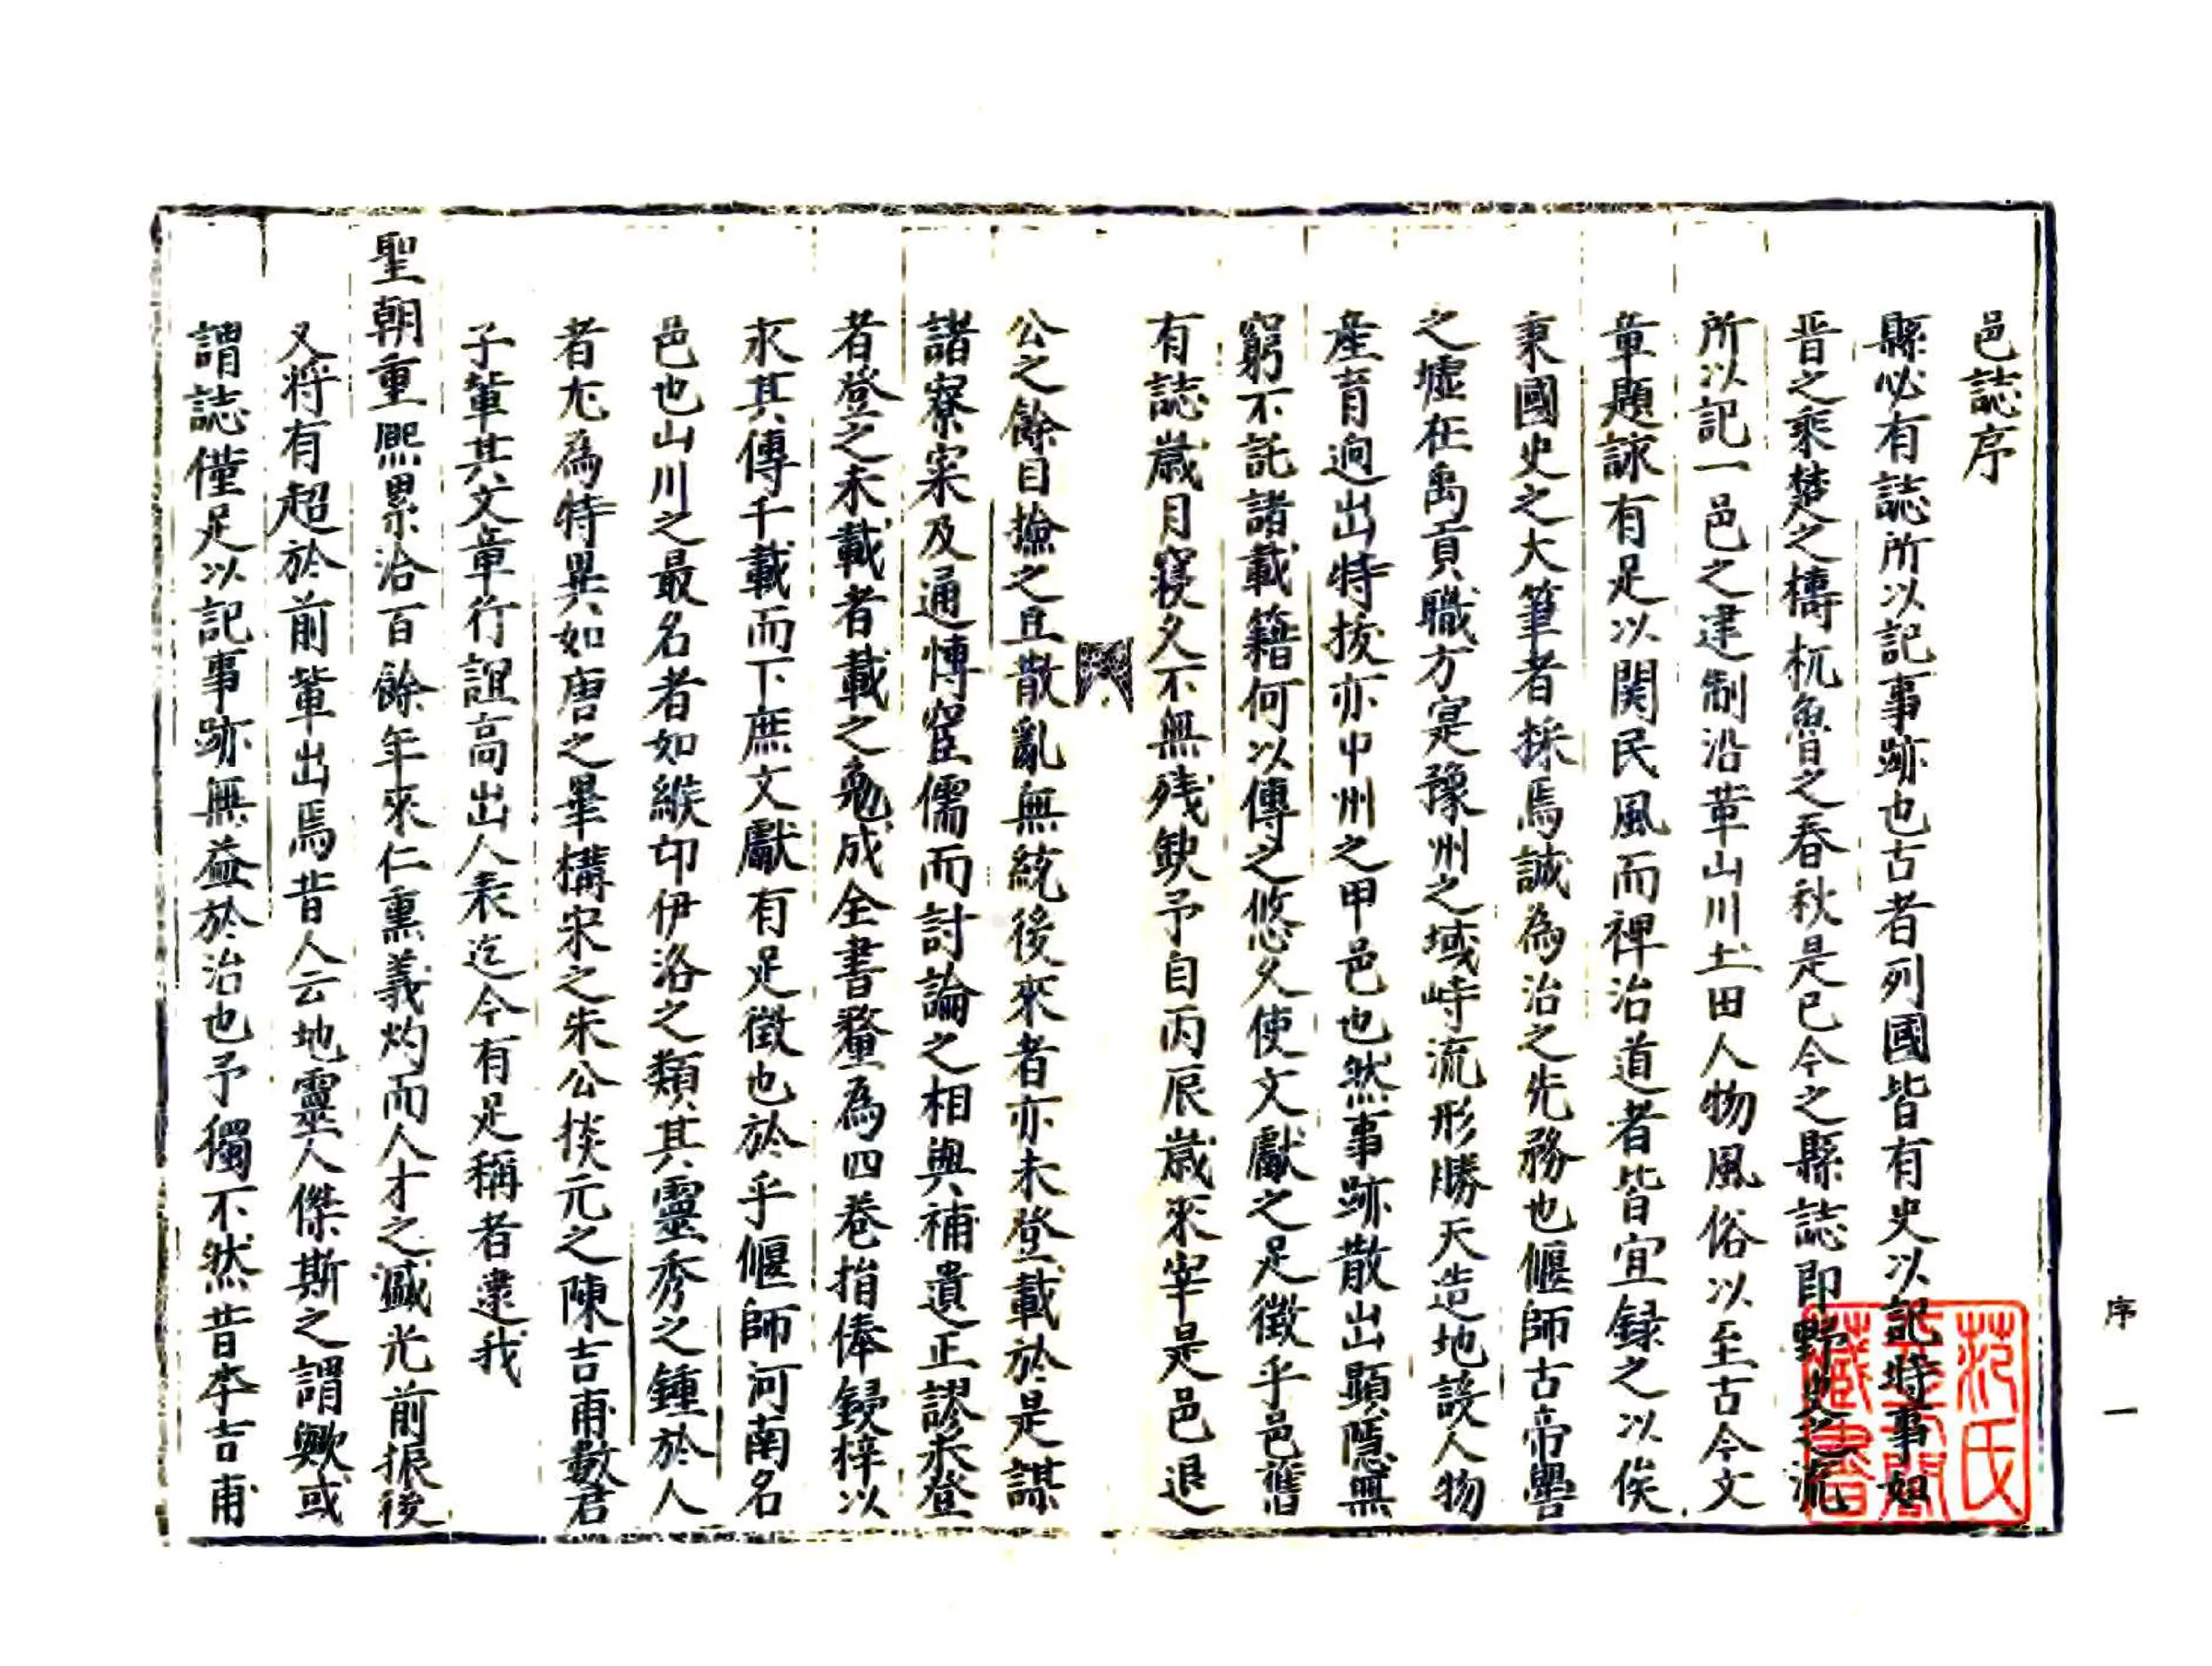 邑誌序
縣必有誌所以記事跡也古者列國皆有史以記時事如
晋之乘楚之檮杌魯之春秋是已今之縣誌即野史之流
所以記一邑之建制沿革山川土田人物風俗以至古今文
章題詠有足以関民風而裨治道者皆宜録之以俟
秉國史之大筆者採焉誠為治之先務也偃師古帝嚳
之墟在禹貢職方寔豫州之域峙流形勝天造地設人物
產育逈出特拔亦中州之甲邑也然事跡散出顯隱無
窮不託諸載籍何以傳之悠久使文獻之足徵乎邑舊
有誌歲月寖久不無残缺予自丙辰歲來宰是邑退
公之餘目撿之且散亂無統後來者亦未登載於是謀
諸寮寀及通博宦儒而討論之相與補遺正謬未登
者登之未載者載之勉成全書釐為四巻捐俸鋟梓以
永其傳千載而下庶文獻有足徵也於乎偃師河南名
邑也山川之最名者如緱邙伊洛之類其靈秀之鍾於人
者尤為特異如唐之畢構宋之朱公掞元之陳吉甫數君
子軰其文章行誼高出人表迄今有足稱者逮我
聖朝重熙累洽百餘年來仁熏義灼而人才之盛光前振後
又将有超於前軰出焉昔人云地靈人傑斯之謂歟或
謂誌僅足以記事跡無益於治也予獨不然昔李吉甫
序
一
范氏
天一閣
藏書